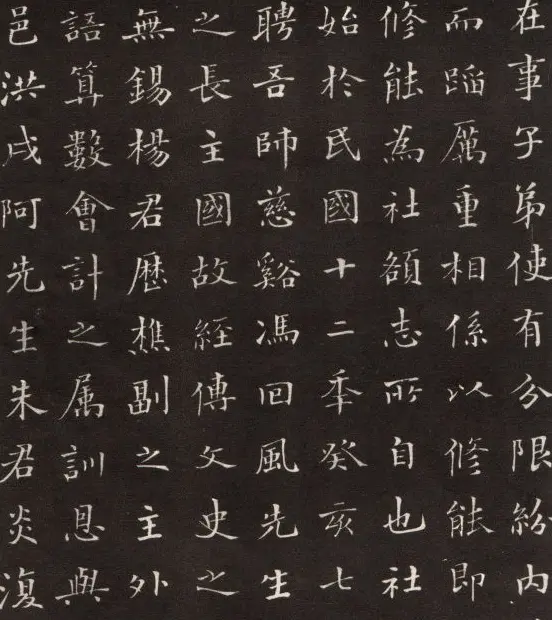 在事子弟使有分限紛内
而蹈厲重相係以修能即
修能為社額志所自也社
始於民國十二秊癸亥七
聘吾師慈谿馮回風先生
之長主國故經傳文史之
無錫楊君歷樵副之主外
語算數會計之属訓恩與
邑洪戌阿先生朱君炎復